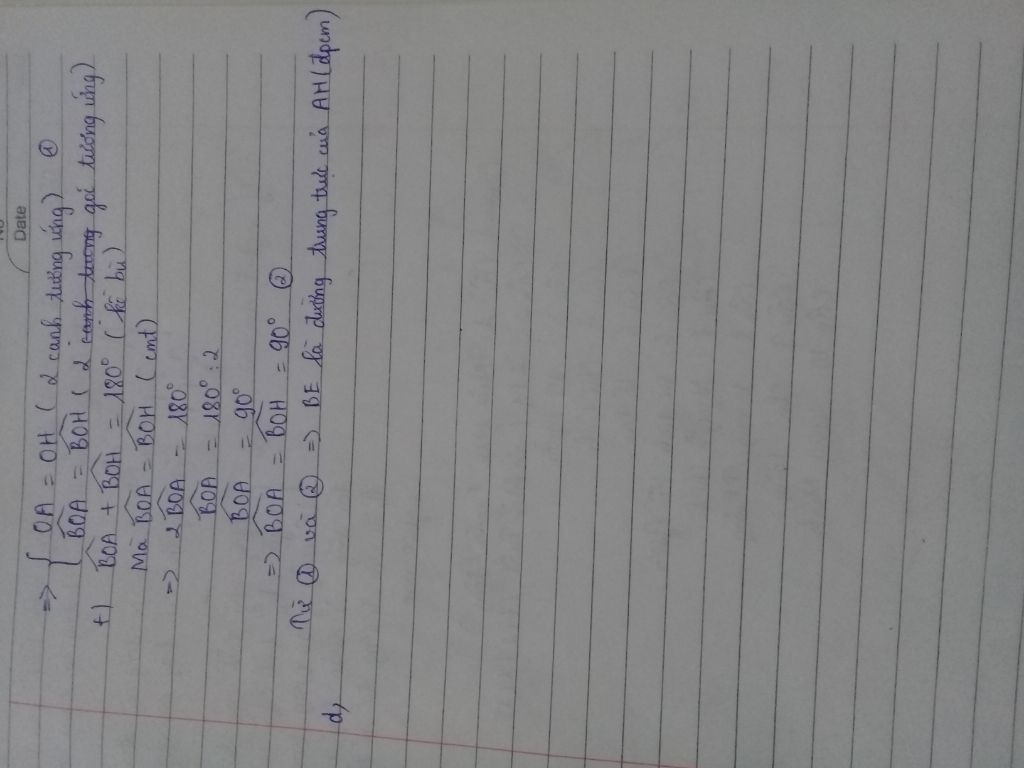 No
Date
=> { OA = OH ( 2 cạnh tương ứng) ①
BOA = BOH ( 2 cạnh tương góc tương ứng)
+) BOA + BOH = 180° ( kề bù)
Mà BOA = BOH ( cmt)
=> 2BOA = 180°
BOA = 180° : 2
BOA = 90°
=> BOA = BOH = 90° ②
Từ ① và ② => BE là đường trung trực của AH (đpcm)
d,